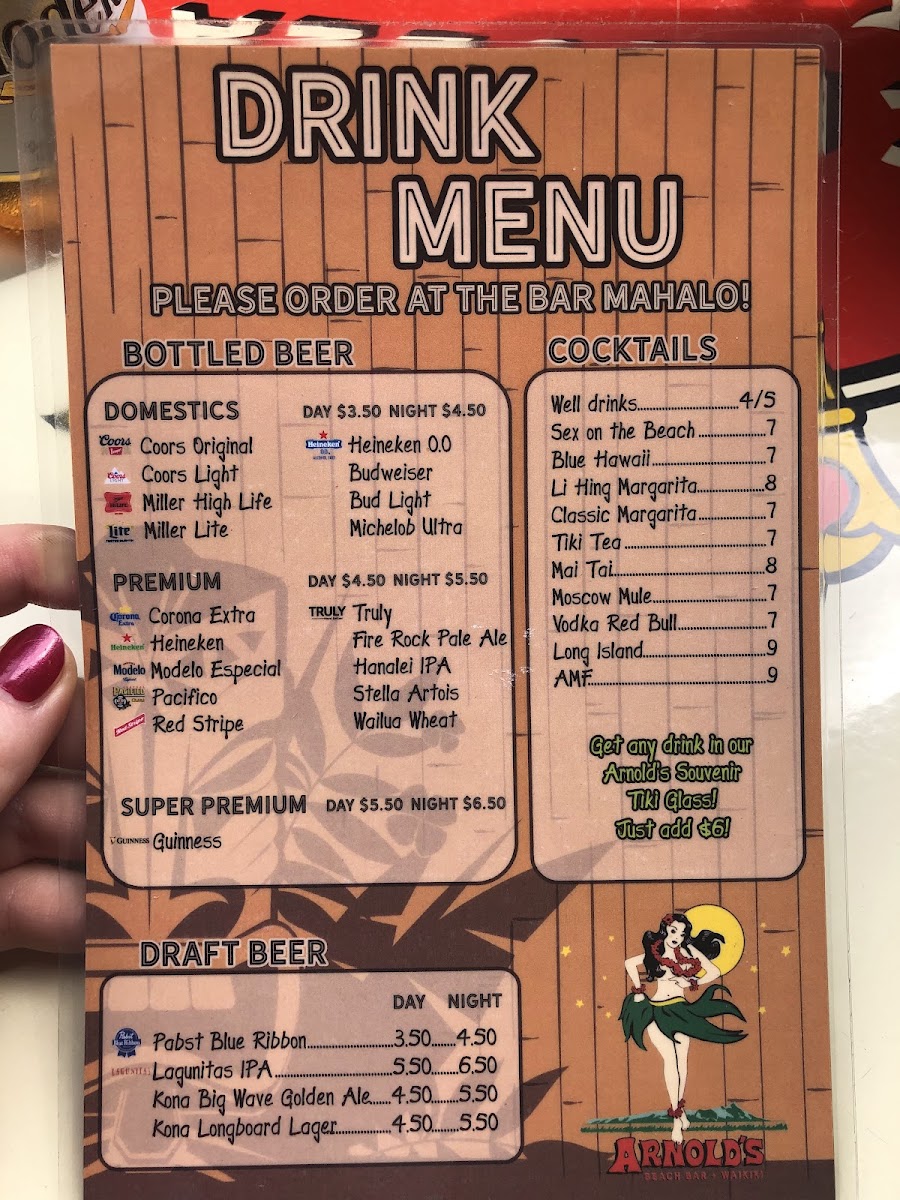 DRINK
MENU
PLEASE ORDER AT THE BAR MAHALO!
BOTTLED BEER
DOMESTICS DAY $3.50 NIGHT $4.50
Coors Coors Original
Coors Light
Miller High Life
Lite Miller Lite
Heineken Heineken 0.0
Budweiser
Bud Light
Michelob Ultra
PREMIUM DAY $4.50 NIGHT $5.50
Corona Extra Corona Extra
Heineken Heineken
Modelo Modelo Especial
Pacifico Pacifico
Red Stripe Red Stripe
TRULY Truly
Fire Rock Pale Ale
Hanalei IPA
Stella Artois
Wailua Wheat
SUPER PREMIUM DAY $5.50 NIGHT $6.50
GUINNESS Guinness
COCKTAILS
Well drinks.......................4/5
Sex on the Beach...............7
Blue Hawaii.........................7
Li Hing Margarita...............8
Classic Margarita...............7
Tiki Tea...............................7
Mai Tai.................................8
Moscow Mule.........................7
Vodka Red Bull...................7
Long Island...........................9
AMF.......................................9
Get any drink in our
Arnold's Souvenir
Tiki Glass!
Just add $6!
DRAFT BEER
DAY NIGHT
Pabst Blue Ribbon Pabst Blue Ribbon....................3.50......4.50
LAGUNITAS Lagunitas IPA...........................5.50......6.50
Kona Big Wave Golden Ale.....4.50......5.50
Kona Longboard Lager.............4.50......5.50
ARNOLD'S
BEACH BAR • WAIKIKI